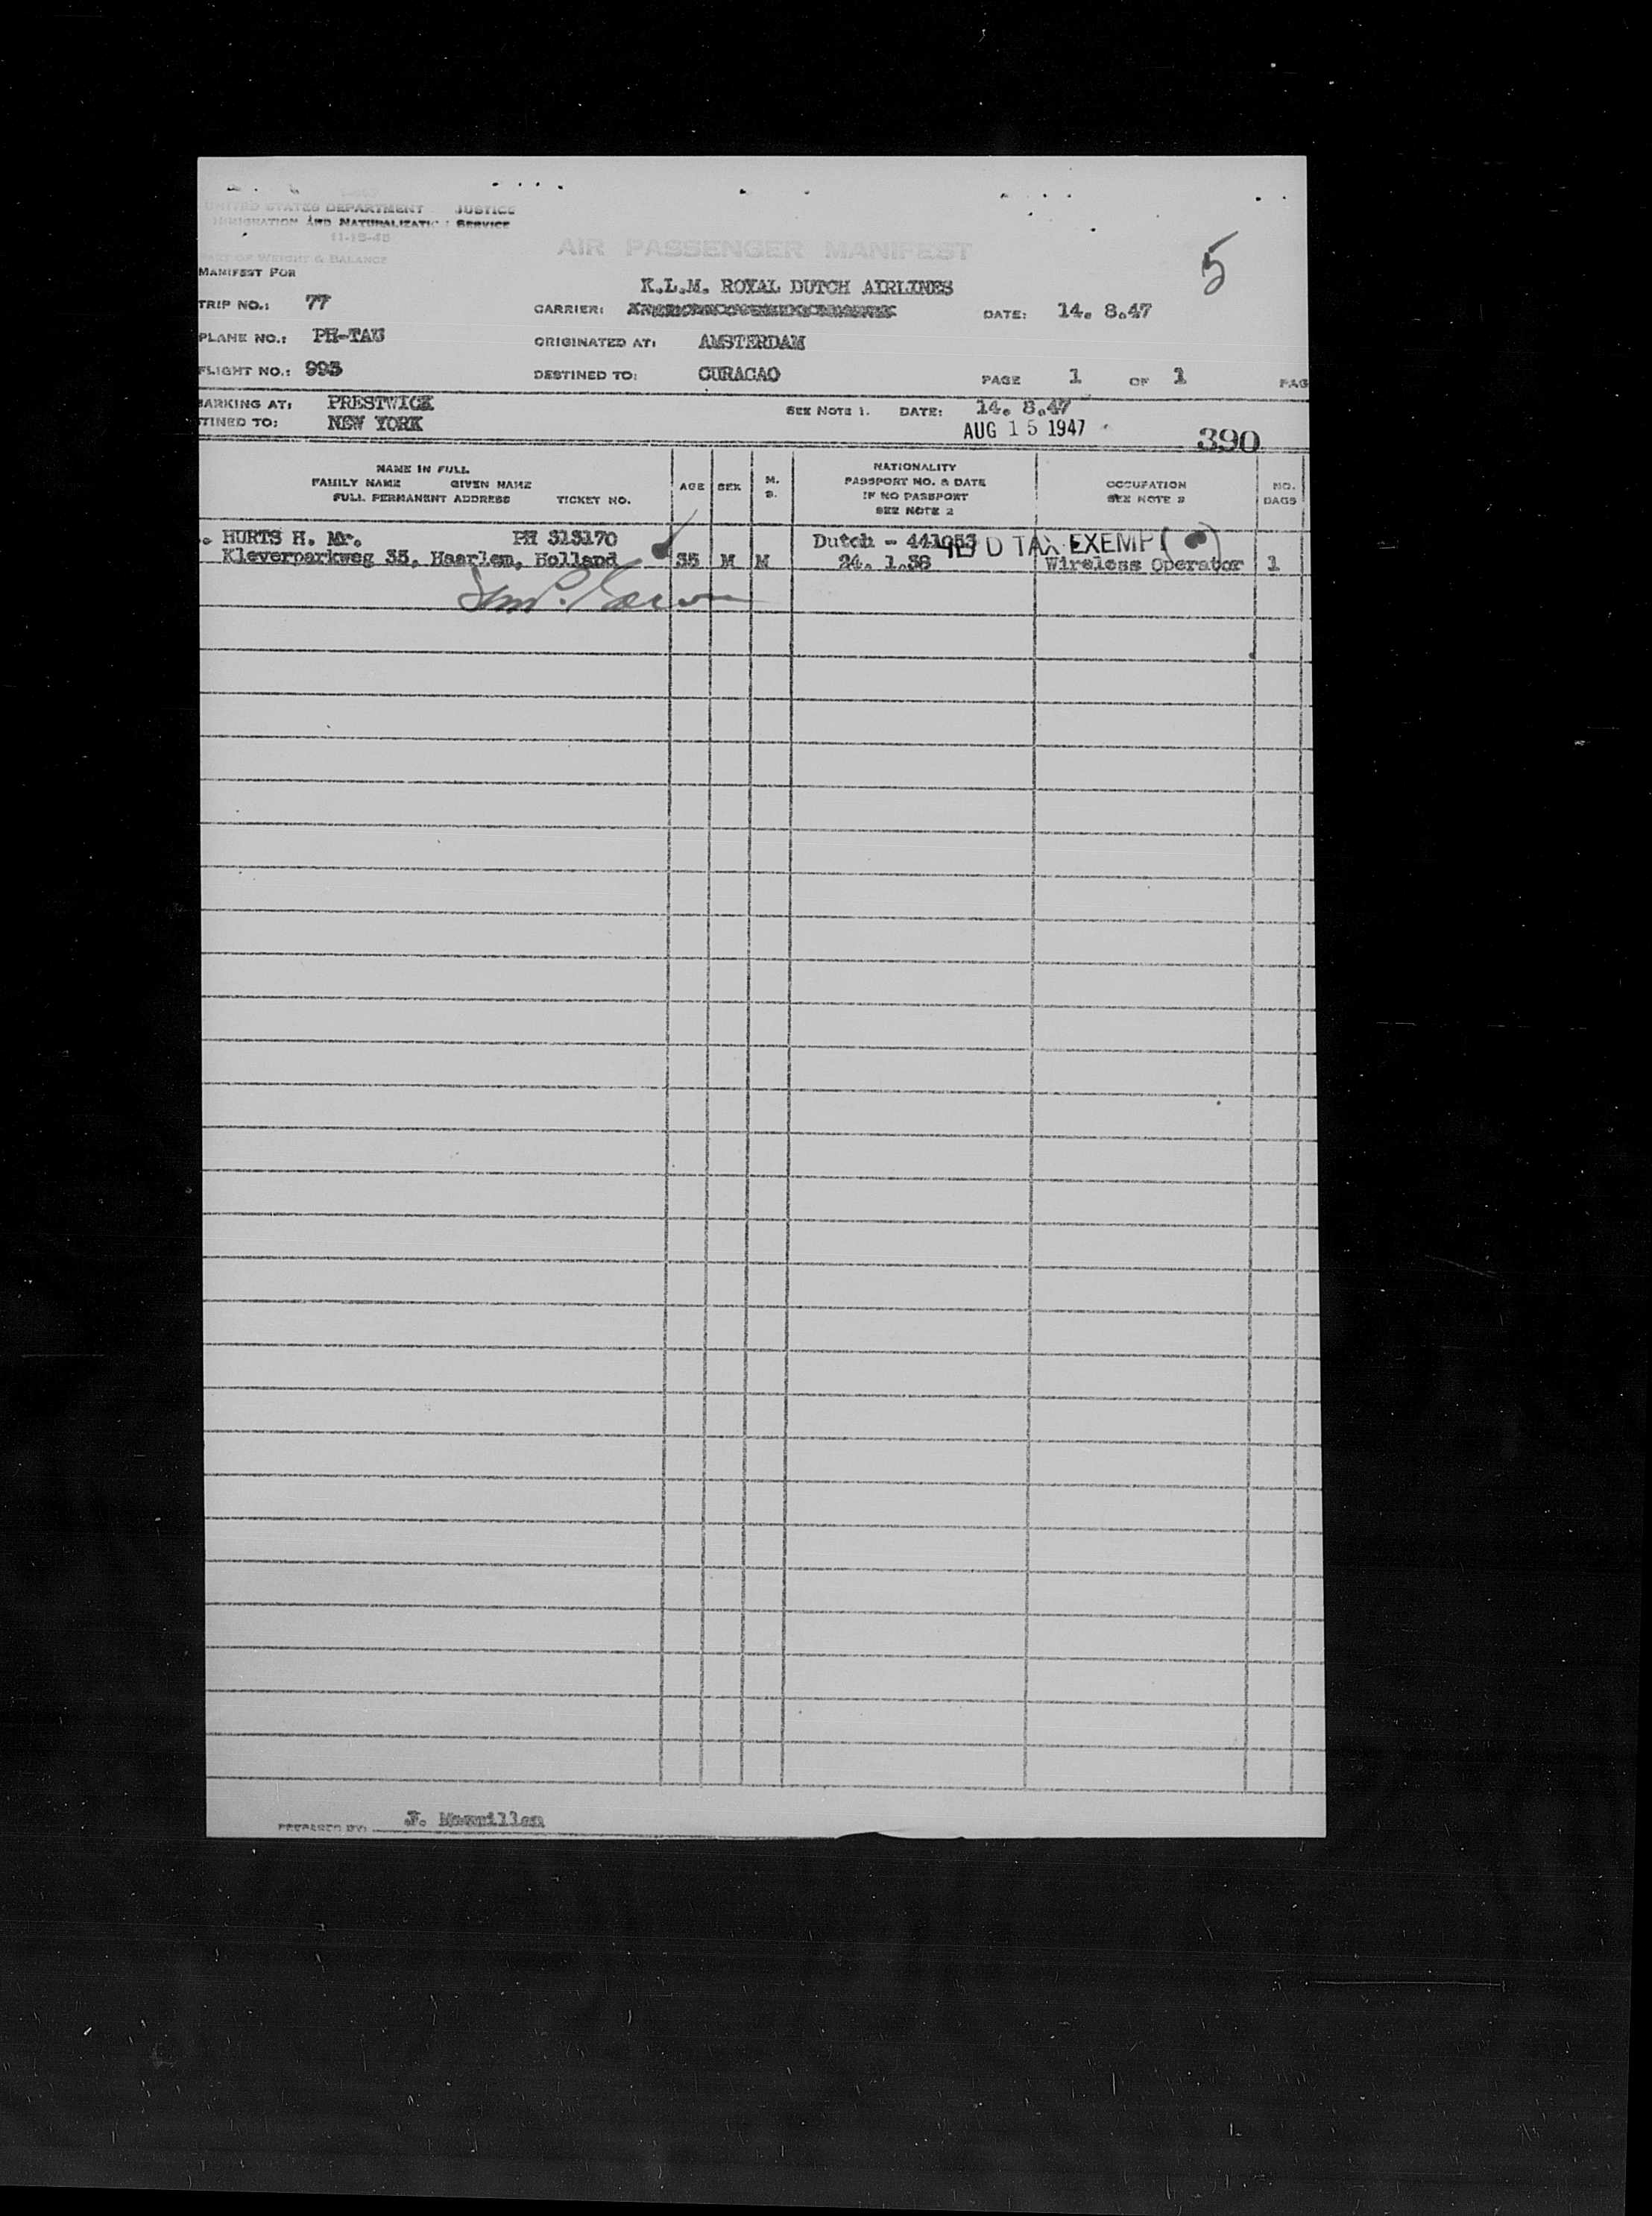 UNITED STATES DEPARTMENT JUSTICE
IMMIGRATION AND NATURALIZATI SERVICE
11-15-45
AIR PASSENGER MANIFEST
PART OF WEIGHT & BALANCE
5
MANIFEST FOR
K.L.M. ROYAL DUTCH AIRLINES
TRIP NO.: 77 CARRIER: DATE: 14. 8.47
PLANE NO.: PH-TAU ORIGINATED AT: AMSTERDAM
FLIGHT NO.: 993 DESTINED TO: CURACAO PAGE 1 OF 1 PAG
BARKING AT: PRESTWICK SEE NOTE 1. DATE: 14. 8.47
TINED TO: NEW YORK AUG 15 1947 390
NAME IN FULL
FAMILY NAME GIVEN NAME
FULL PERMANENT ADDRESS TICKET NO.
AGE
SEX
M.
S.
NATIONALITY
PASSPORT NO. & DATE
IF NO PASSPORT
SEE NOTE 2
OCCUPATION
SEE NOTE 3
NO.
BAGS
HURTS H. Mr. PH 313170 Dutch - 441053 D TAX EXEMP
Kleverparkweg 35, Haarlem, Holland 35 M M 24. 1.38 Wireless Operator 1
PREPARED BY: J.